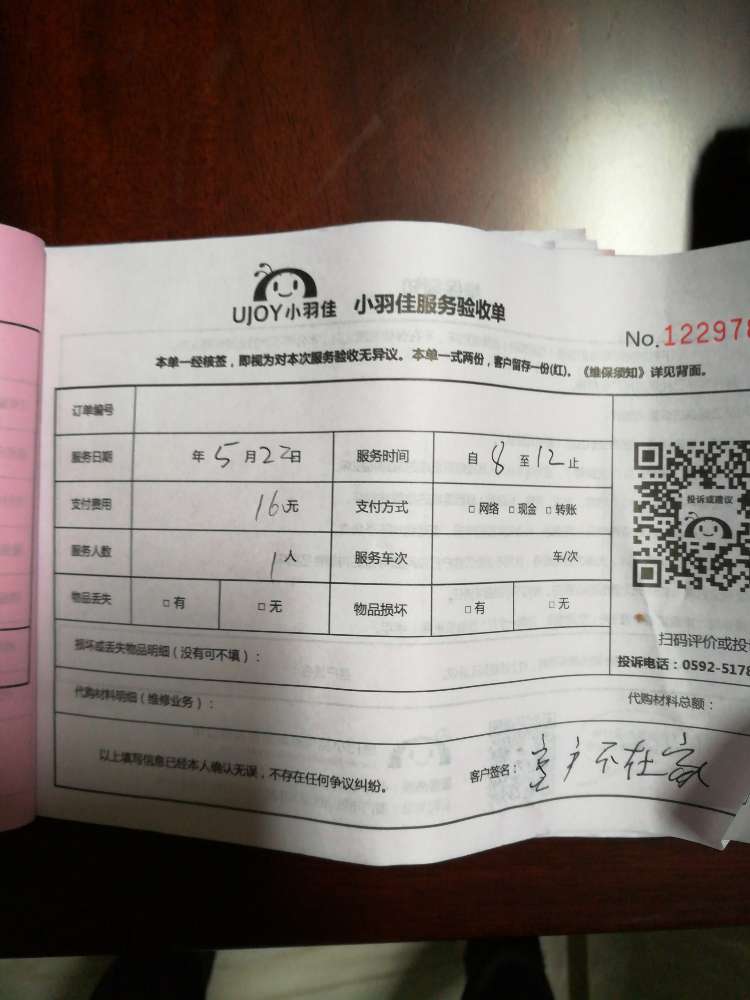 UJOY小羽佳 小羽佳服务验收单
No.122978
本单一经核签，即视为对本次服务验收无异议。本单一式两份，客户留存一份(红)。《维保须知》详见背面。
订单编号
服务日期 年 5 月 22 日 服务时间 自 8 至 12 止
支付费用 16 元 支付方式 □网络 □现金 □转账
投诉或建议
服务人数 1 人 服务车次 车/次
物品丢失 □有 □无 物品损坏 □有 □无
扫码评价或投
损坏或丢失物品明细（没有可不填）：
投诉电话：0592-5178
代购材料明细（维修业务）： 代购材料总额：
以上填写信息已经本人确认无误，不存在任何争议纠纷。 客户签名： 户不在家